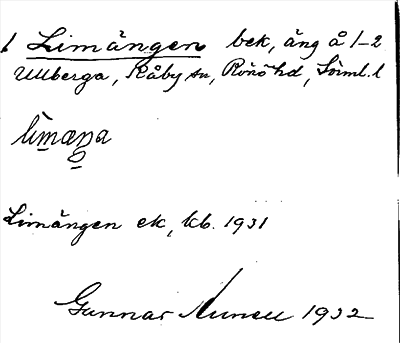 1 Limängen bek, äng å 1-2
Ullberga, Råby sn, Rönö hd, Sörml. l
limæŋa
Limängen ek, kb. 1931
Gunnar 1932